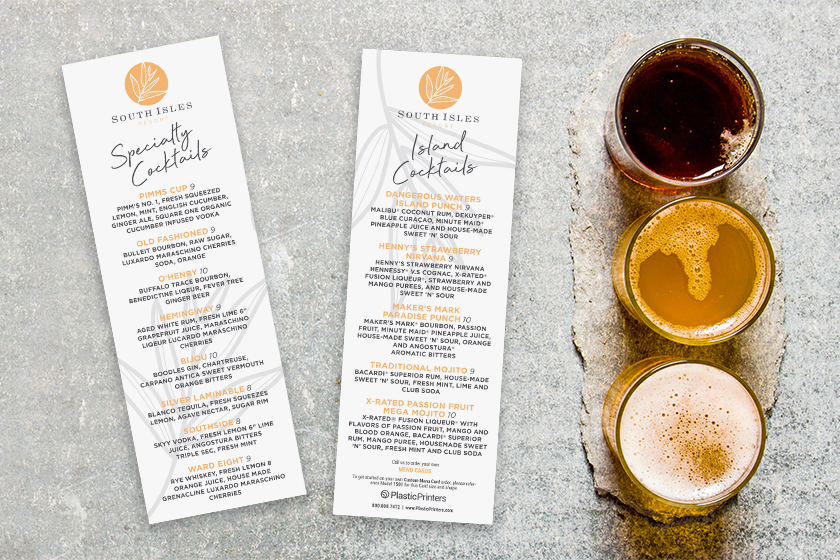 SOUTH ISLES
RESORT
Specialty
Cocktails
PIMMS CUP 9
PIMM'S NO. 1, FRESH SQUEEZED
LEMON, MINT, ENGLISH CUCUMBER,
GINGER ALE, SQUARE ONE ORGANIC
CUCUMBER INFUSED VODKA
OLD FASHIONED 9
BULLEIT BOURBON, RAW SUGAR,
LUXARDO MARASCHINO CHERRIES
SODA, ORANGE
O'HENRY 10
BUFFALO TRACE BOURBON,
BENEDICTINE LIQEUR, FEVER TREE
GINGER BEER
HEMINGWAY 9
AGED WHITE RUM, FRESH LIME 6"
GRAPEFRUIT JUICE, MARASCHINO
LIQEUR LUCARDO MARASCHINO
CHERRIES
BIJOU 10
BOODLES GIN, CHARTREUSE,
CARPANO ANTICA SWEET VERMOUTH
ORANGE BITTERS
SILVER LAMINABLE 8
BLANCO TEQUILA, FRESH SQUEEZES
LEMON, AGAVE NECTAR, SUGAR RIM
SOUTHSIDE 8
SKYY VODKA, FRESH LEMON 6" LIME
JUICE, ANGOSTURA BITTERS
TRIPLE SEC, FRESH MINT
WARD EIGHT 9
RYE WHISKEY, FRESH LEMON 8
ORANGE JUICE, HOUSE MADE
GRENACLINE LUXARDO MARASCHINO
CHERRIES
SOUTH ISLES
RESORT
Island
Cocktails
DANGEROUS WATERS
ISLAND PUNCH 9
MALIBU® COCONUT RUM, DEKUYPER®
BLUE CURAÇAO, MINUTE MAID®
PINEAPPLE JUICE AND HOUSE-MADE
SWEET 'N' SOUR
HENNY'S STRAWBERRY
NIRVANA 9
HENNY'S STRAWBERRY NIRVANA
HENNESSY® V.S COGNAC, X-RATED®
FUSION LIQUEUR®, STRAWBERRY AND
MANGO PUREES, AND HOUSE-MADE
SWEET 'N' SOUR
MAKER'S MARK
PARADISE PUNCH 10
MAKER'S MARK® BOURBON, PASSION
FRUIT, MINUTE MAID® PINEAPPLE JUICE,
HOUSE-MADE SWEET 'N' SOUR, ORANGE
AND ANGOSTURA®
AROMATIC BITTERS
TRADITIONAL MOJITO 9
BACARDI® SUPERIOR RUM, HOUSE-MADE
SWEET 'N' SOUR, FRESH MINT, LIME AND
CLUB SODA
X-RATED PASSION FRUIT
MEGA MOJITO 10
X-RATED® FUSION LIQUEUR® WITH
FLAVORS OF PASSION FRUIT, MANGO AND
BLOOD ORANGE, BACARDI® SUPERIOR
RUM, MANGO PUREE, HOUSEMADE SWEET
'N' SOUR, FRESH MINT AND CLUB SODA
Call us to order your own
MENU CARDS
To get started on your own Custom Menu Card order, please refer-
ence Model 1501 for this Card size and shape.
PlasticPrinters
800.808.7472 | www.PlasticPrinters.com